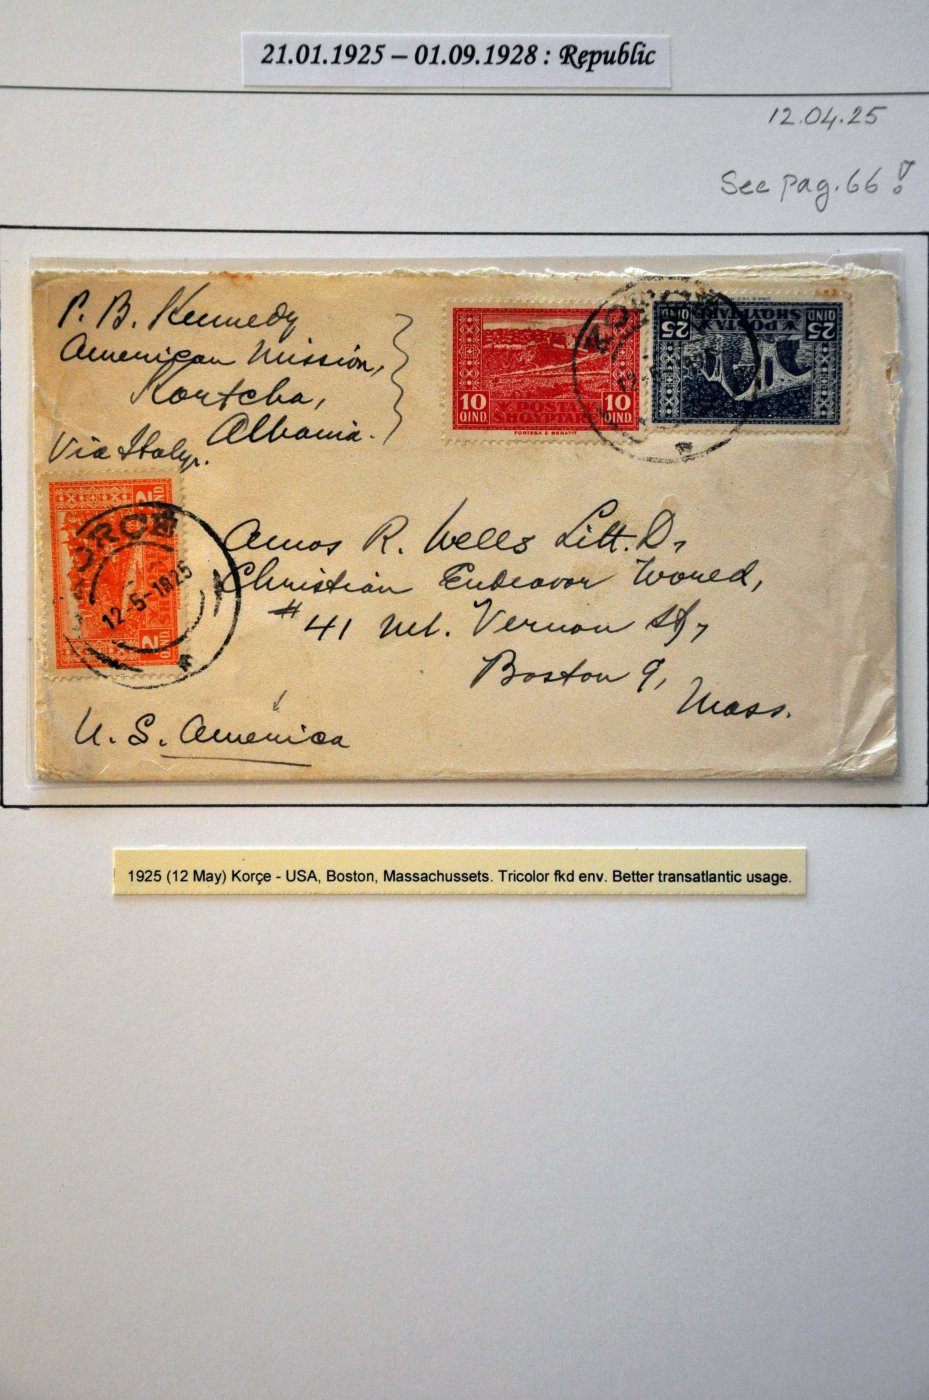 21.01.1925 – 01.09.1928 : Republic
12.04.25
See pag. 66!
P. B. Kennedy
American Mission,
Kortcha,
Albania.
Via Italy.
10 QIND
POSTA
SHQYPTARE
10 QIND
PORTESA E BERATIT
25 QIND
POSTA
SHQYPTARE
25 QIND
KORÇË
2 QIND
2 QIND
KORÇË
12-5-1925
Amos R. Wells Litt. D,
Christian Endeavor World,
# 41 Mt. Vernon St,
Boston 9,
Mass.
U. S. America
1925 (12 May) Korçe - USA, Boston, Massachussets. Tricolor fkd env. Better transatlantic usage.